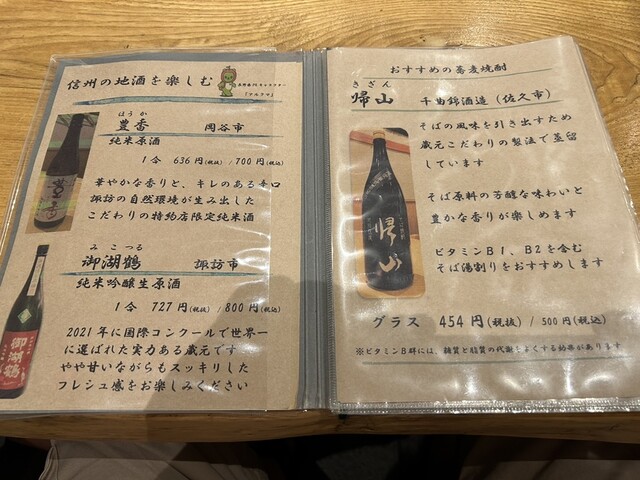 信州の地酒を楽しむ
長野県PRキャラクター
「アルクマ」
ほうか
豊香 岡谷市
純米原酒
1合 636円(税抜) / 700円(税込)
華やかな香りと、キレのある辛口
諏訪の自然環境が生み出した
こだわりの特約店限定純米酒
みこつる
御湖鶴 諏訪市
純米吟醸生原酒
1合 727円(税抜) / 800円(税込)
2021年に国際コンクールで世界一
に選ばれた実力ある蔵元です
やや甘いながらもスッキリした
フレシュ感をお楽しみください
豊香
御湖鶴
おすすめの蕎麦焼酎
きざん
帰山 千曲錦酒造(佐久市)
そばの風味を引き出すため
蔵元こだわりの製法で蒸留
しています
そば原料の芳醇な味わいと
豊かな香りが楽しめます
ビタミンB1、B2を含む
そば湯割りをおすすめします
帰山
グラス 454円(税抜) / 500円(税込)
※ビタミンB群には、糖質と脂質の代謝をよくする効果があります